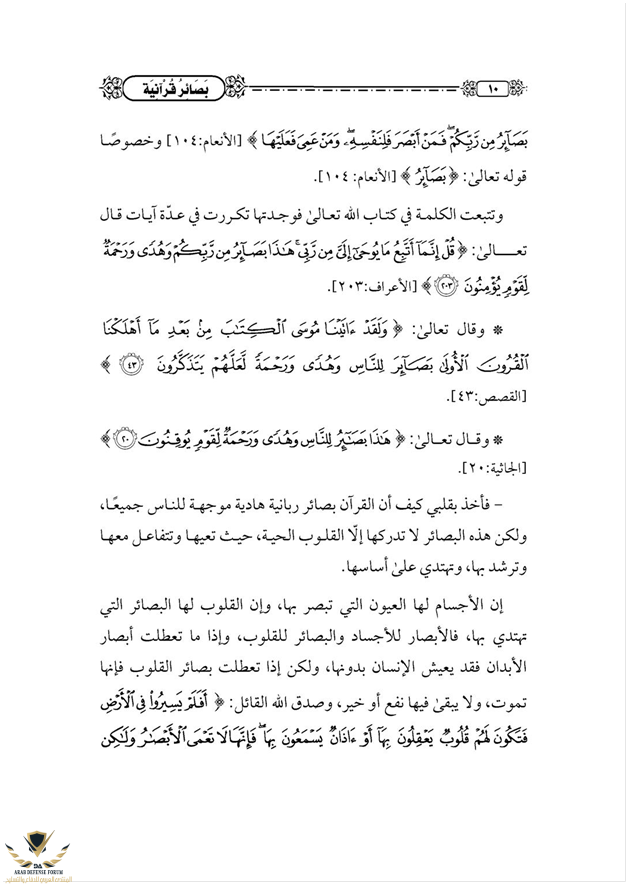 ١٠
بَصَائِرُ قُرْآنِيَة
بَصَآئِرُ مِن رَّبِّكُمْ ۖ فَمَنْ أَبْصَرَ فَلِنَفْسِهِۦ ۖ وَمَنْ عَمِىَ فَعَلَيْهَا ﴾ [الأنعام:١٠٤] وخصوصًا
قوله تعالىٰ: ﴿ بَصَآئِرُ ﴾ [الأنعام: ١٠٤].
وتتبعت الكلمة في كتاب الله تعالىٰ فوجدتها تكررت في عدّة آيات قال
تعـــالىٰ: ﴿ قُلْ إِنَّمَآ أَتَّبِعُ مَا يُوحَىٰٓ إِلَىَّ مِن رَّبِّى ۚ هَـٰذَا بَصَآئِرُ مِن رَّبِّكُمْ وَهُدًى وَرَحْمَةٌ
لِّقَوْمٍ يُؤْمِنُونَ ﴿٢٠٣﴾ ﴾ [الأعراف:٢٠٣].
* وقال تعالىٰ: ﴿ وَلَقَدْ ءَاتَيْنَا مُوسَى ٱلْكِتَـٰبَ مِنۢ بَعْدِ مَآ أَهْلَكْنَا
ٱلْقُرُونَ ٱلْأُولَىٰ بَصَآئِرَ لِلنَّاسِ وَهُدًى وَرَحْمَةً لَّعَلَّهُمْ يَتَذَكَّرُونَ ﴿٤٣﴾ ﴾
[القصص:٤٣].
* وقـال تعـالىٰ: ﴿ هَـٰذَا بَصَـٰٓئِرُ لِلنَّاسِ وَهُدًى وَرَحْمَةٌ لِّقَوْمٍ يُوقِنُونَ ﴿٢٠﴾ ﴾
[الجاثية:٢٠].
– فأخذ بقلبي كيف أن القرآن بصائر ربانية هادية موجهة للناس جميعًا،
ولكن هذه البصائر لا تدركها إلّا القلـوب الحيـة، حيـث تعيهـا وتتفاعـل معهـا
وترشد بها، وتهتدي علىٰ أساسها.
إن الأجسام لها العيون التي تبصر بها، وإن القلوب لها البصائر التي
تهتدي بها، فالأبصار للأجساد والبصائر للقلوب، وإذا ما تعطلت أبصار
الأبدان فقد يعيش الإنسان بدونها، ولكن إذا تعطلت بصائر القلوب فإنها
تموت، ولا يبقىٰ فيها نفع أو خير، وصدق الله القائل: ﴿ أَفَلَمْ يَسِيرُوا۟ فِى ٱلْأَرْضِ
فَتَكُونَ لَهُمْ قُلُوبٌ يَعْقِلُونَ بِهَآ أَوْ ءَاذَانٌ يَسْمَعُونَ بِهَا ۖ فَإِنَّهَا لَا تَعْمَى ٱلْأَبْصَـٰرُ وَلَـٰكِن
DA
ARAB DEFENSE FORUM